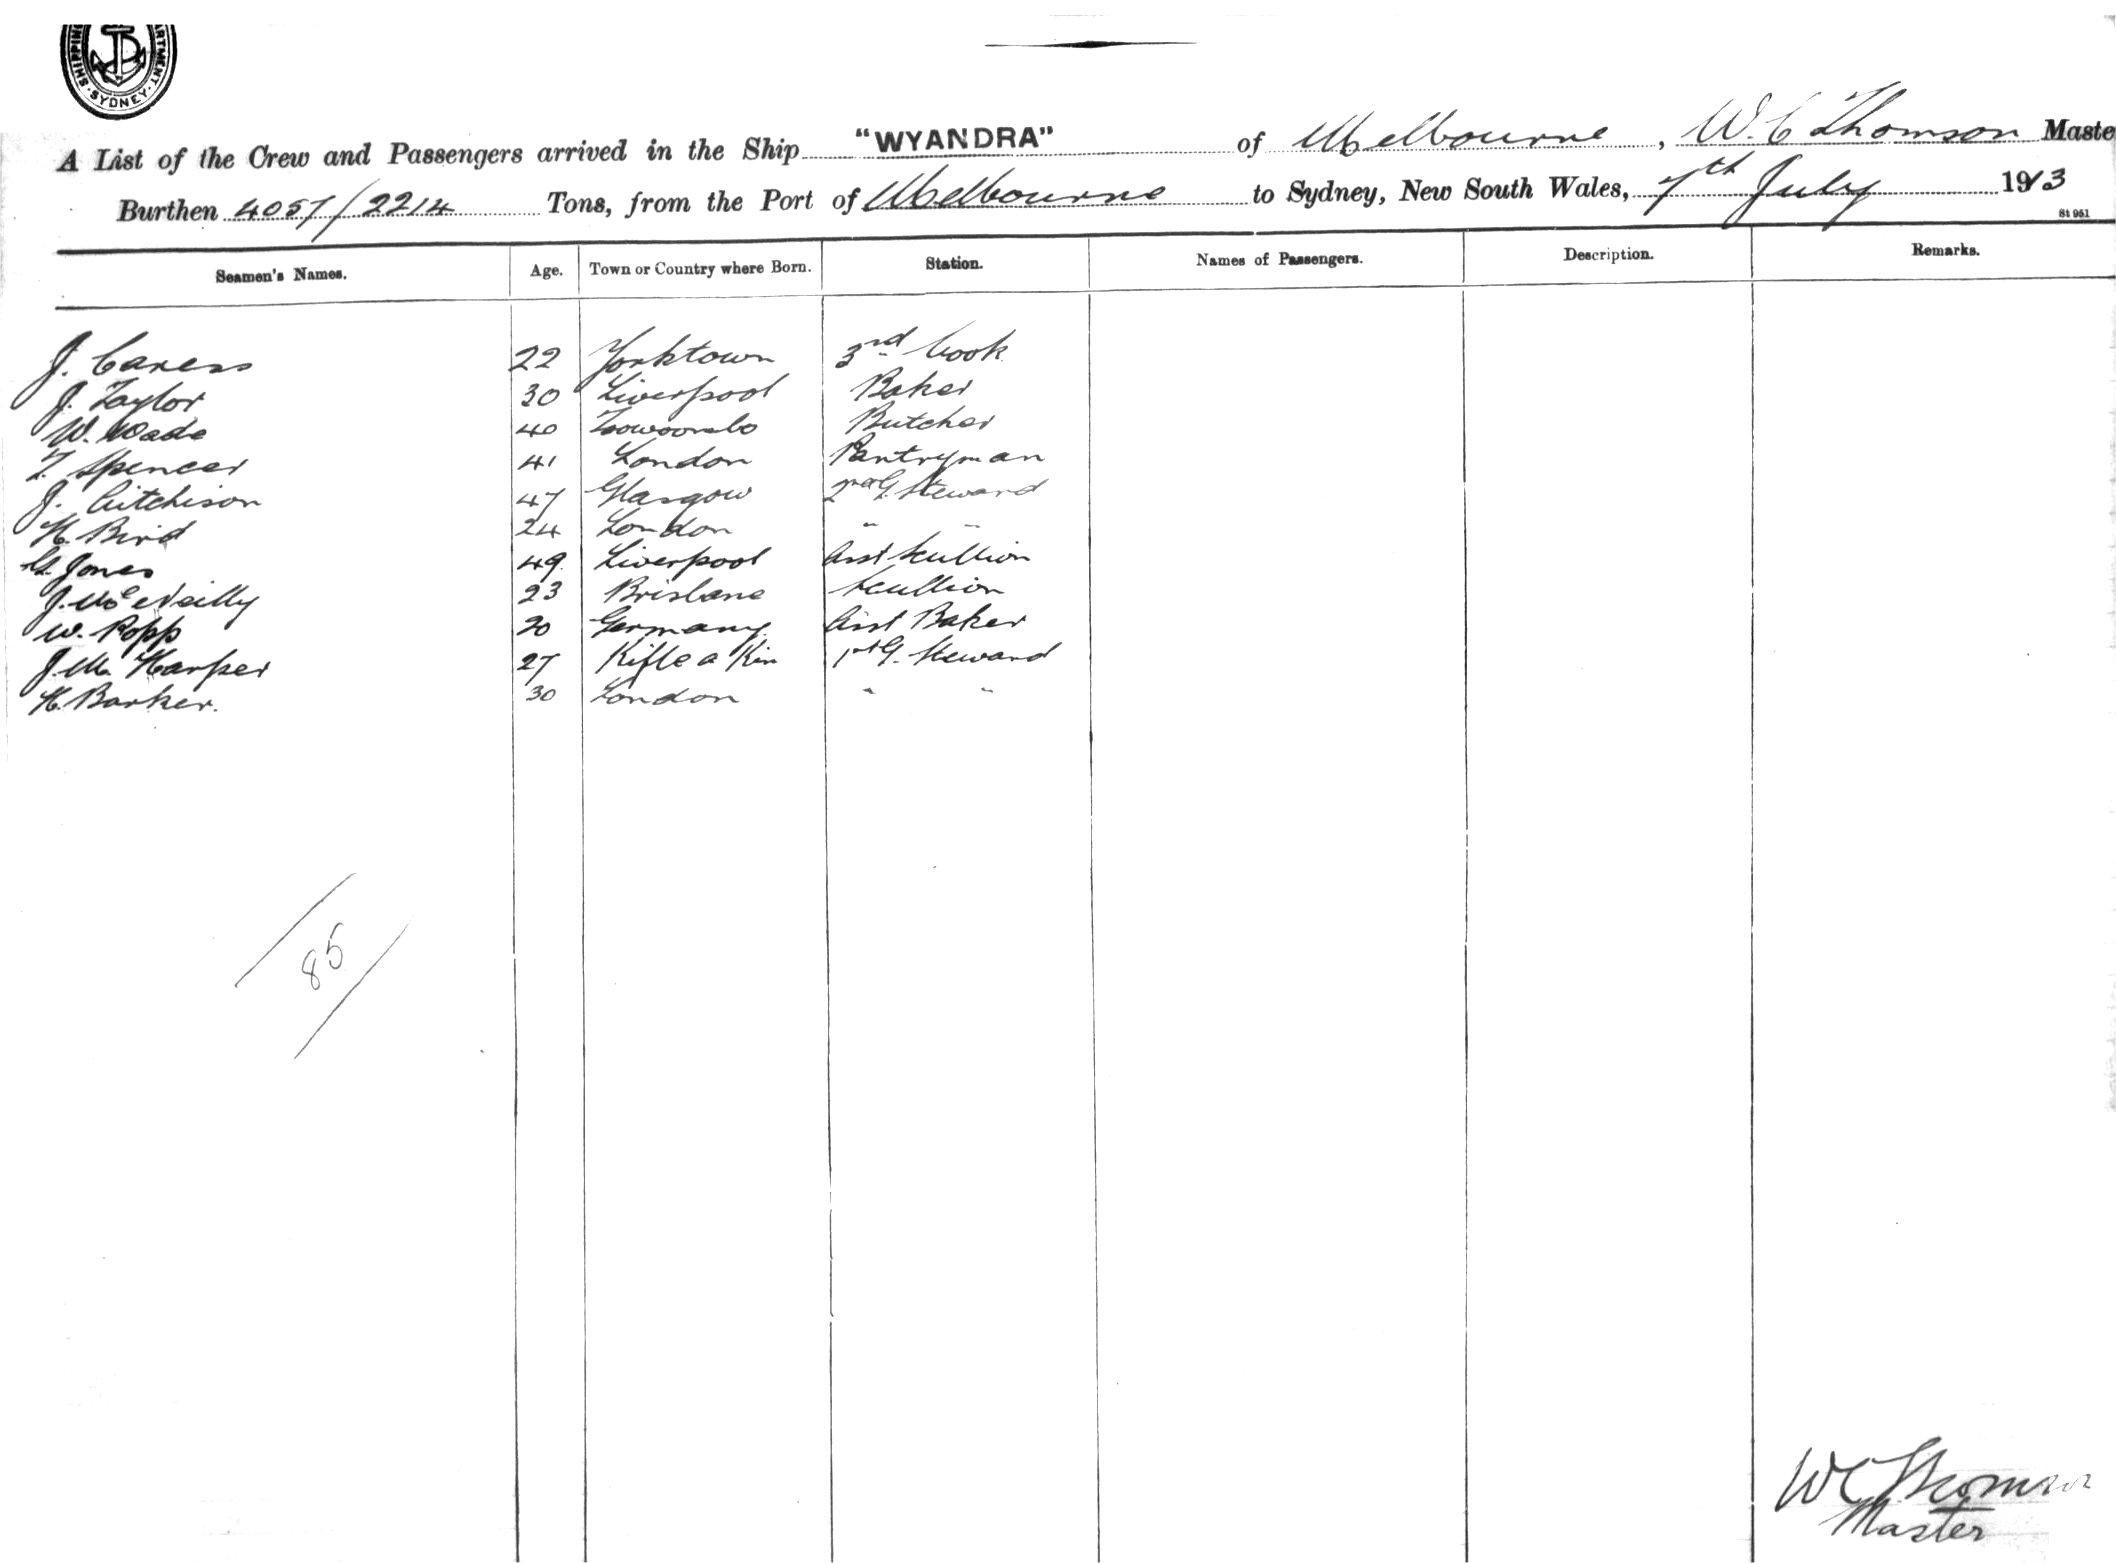 SHIPPING DEPARTMENT SYDNEY
A List of the Crew and Passengers arrived in the Ship "WYANDRA" of Melbourne, W. C. Thomson Maste
Burthen 4057/2214 Tons, from the Port of Melbourne to Sydney, New South Wales, 7th July 1913
St 951
Seamen's Names. Age. Town or Country where Born. Station. Names of Passengers. Description. Remarks.
J. Caress 22 Yorktown 3rd Cook
J. Taylor 30 Liverpool Baker
W. Wade 40 Toowoomba Butcher
T. Spencer 41 London Pantryman
J. Aitchison 47 Glasgow 2nd G. Steward
H. Bird 24 London " "
G. Jones 49. Liverpool Asst Scullion
J. McNeilly 23 Brisbane Scullion
W. Popp 20 Germany Asst Baker
J. M. Harper 27 1st G. Steward
H. Barker. 30 London " "
85
W C Thomson
Master